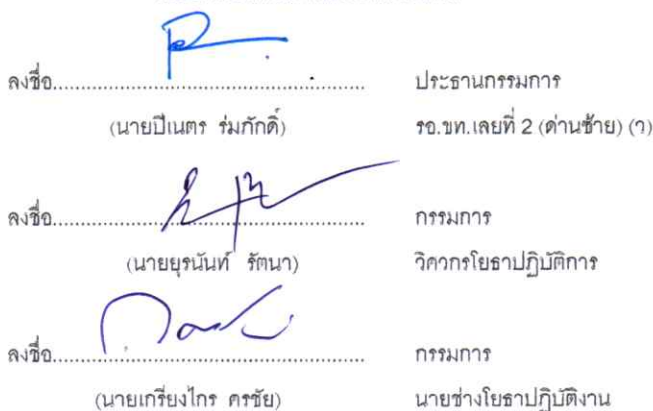 ลงชื่อ........................................ ประธานกรรมการ
(นายปิเนตร ร่มภักดิ์) รอ.ขท.เลยที่ 2 (ด่านซ้าย) (ว)
ลงชื่อ........................................ กรรมการ
(นายยุรนันท์ รัตนา) วิศวกรโยธาปฏิบัติการ
ลงชื่อ........................................ กรรมการ
(นายเกรียงไกร ศรชัย) นายช่างโยธาปฏิบัติงาน